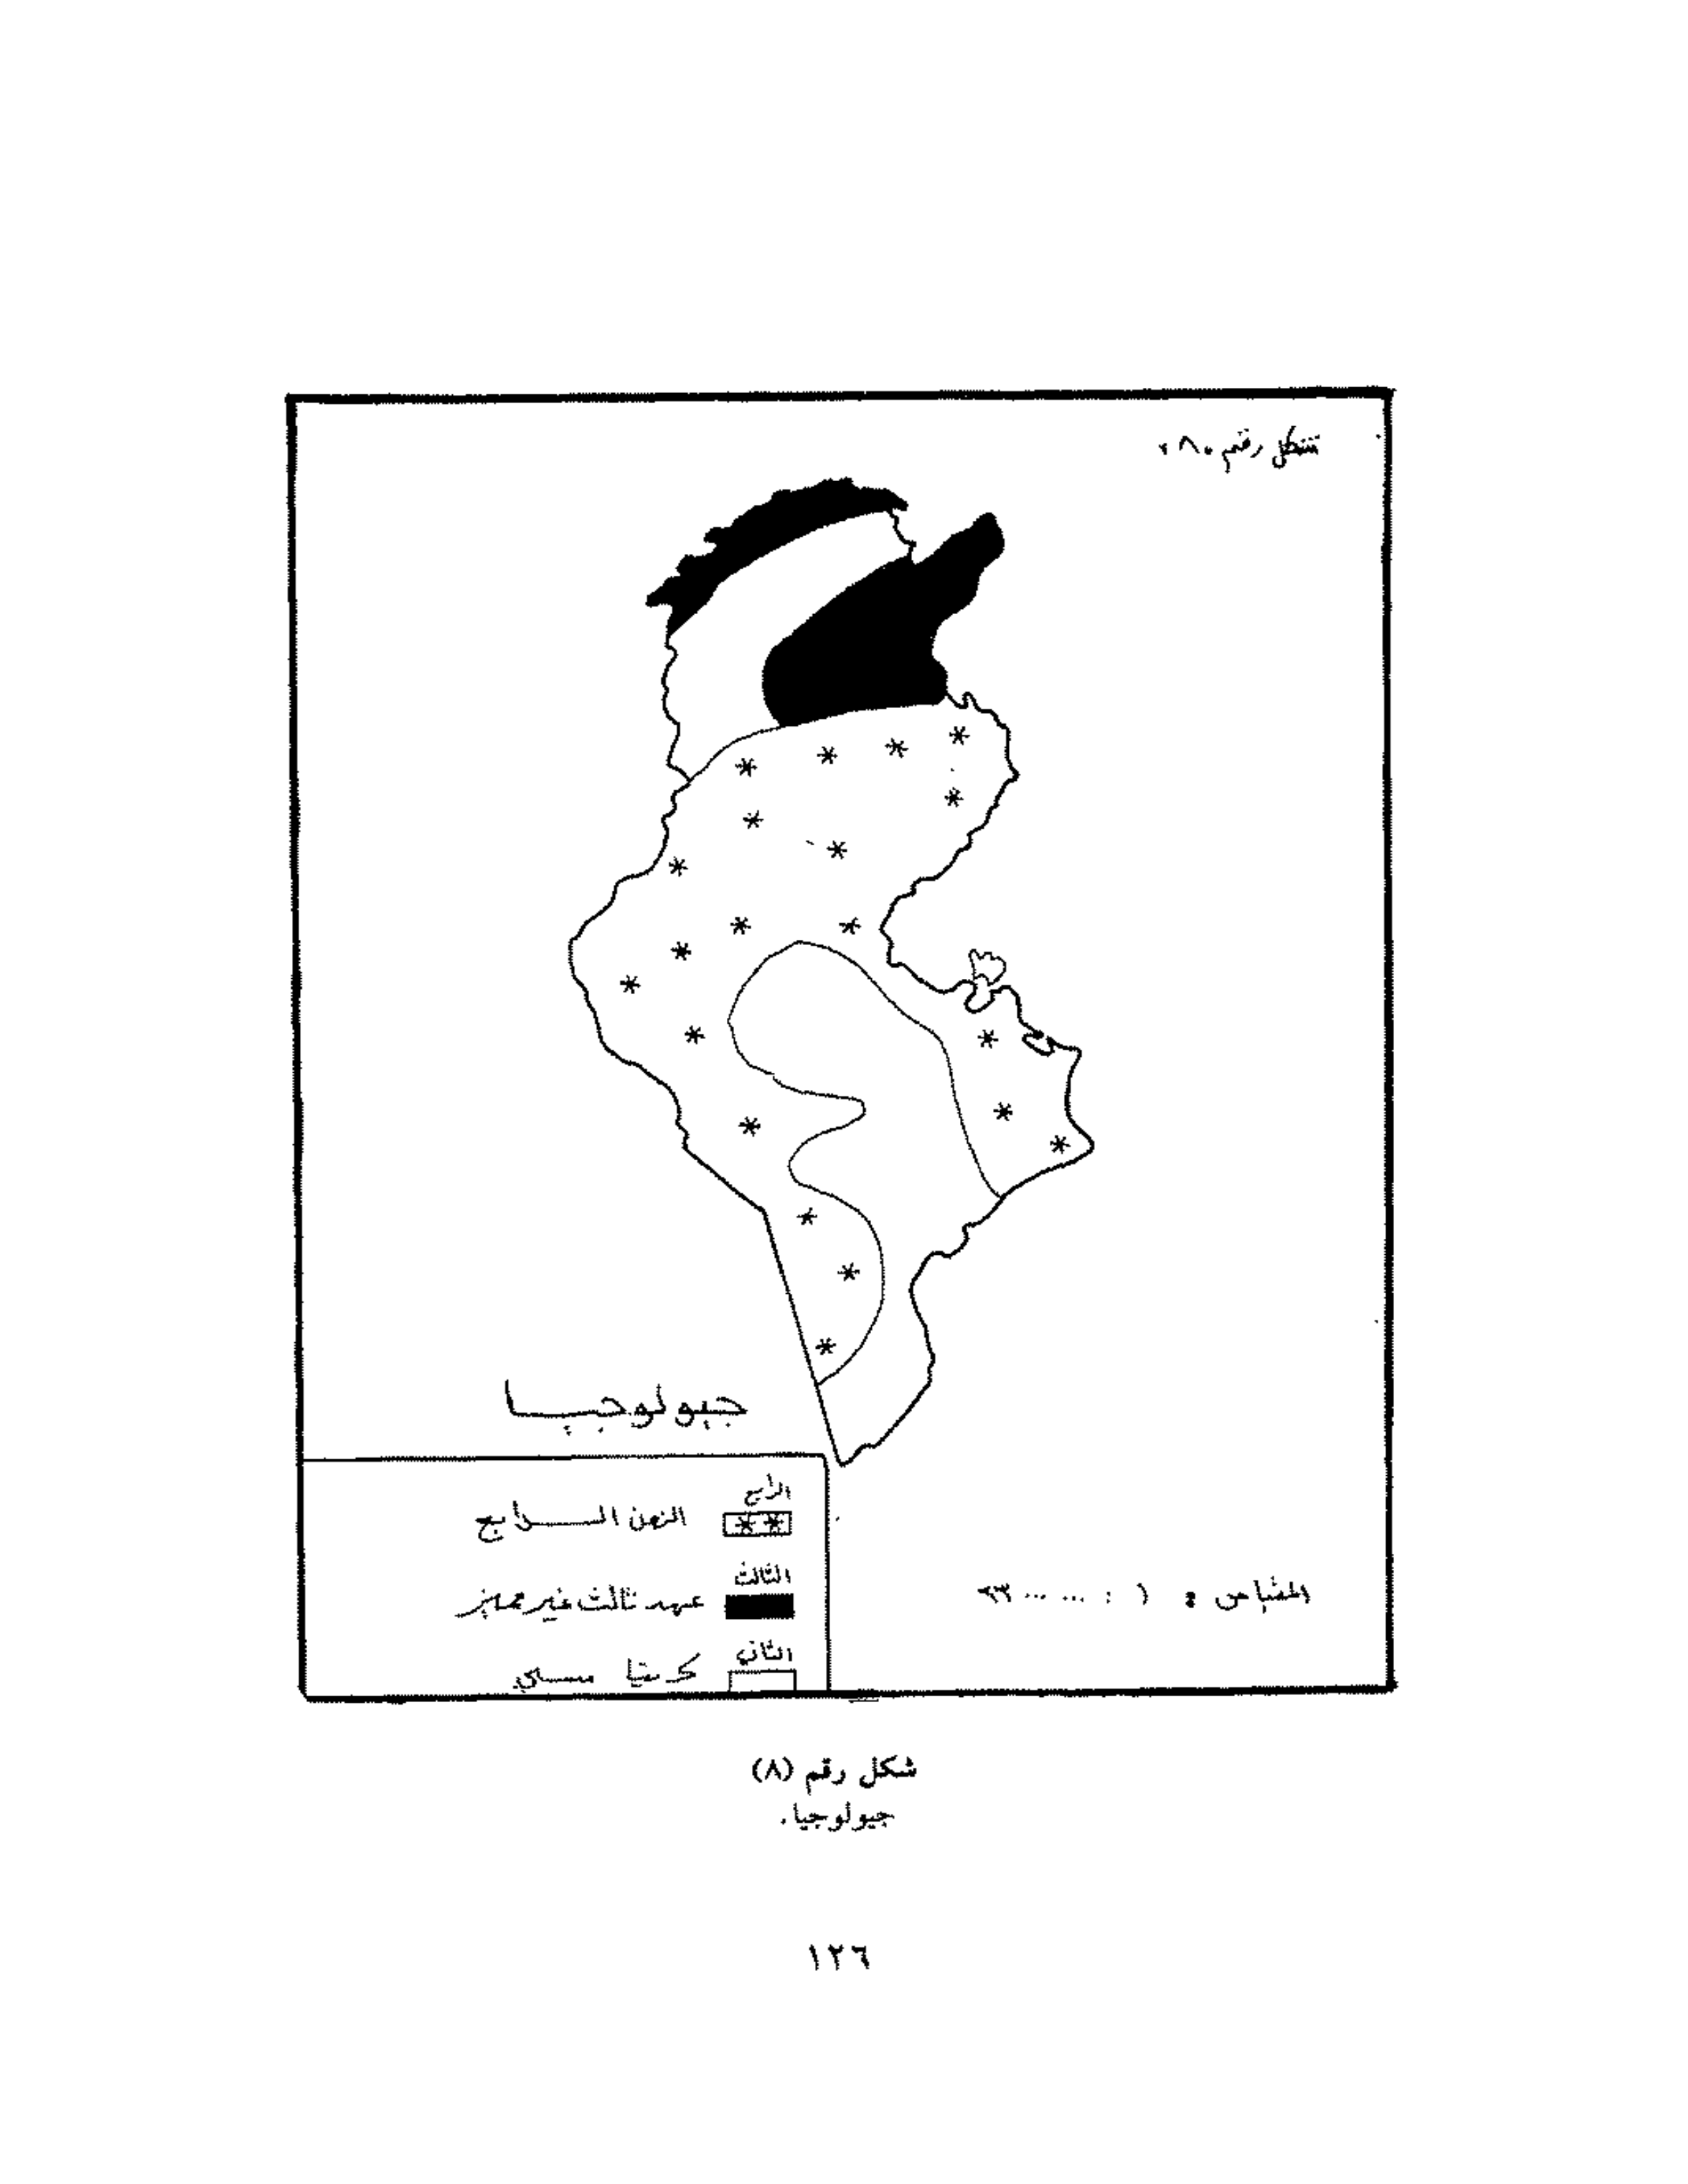 شكل رقم ٠٨
جيولوجيا
الرابع
الزمن الرابع
الثالث
عهد ثالث غير مميز
الثاني
كريتاسي
المقياس : ١ :
شكل رقم (٨)
جيولوجيا.
١٢٦